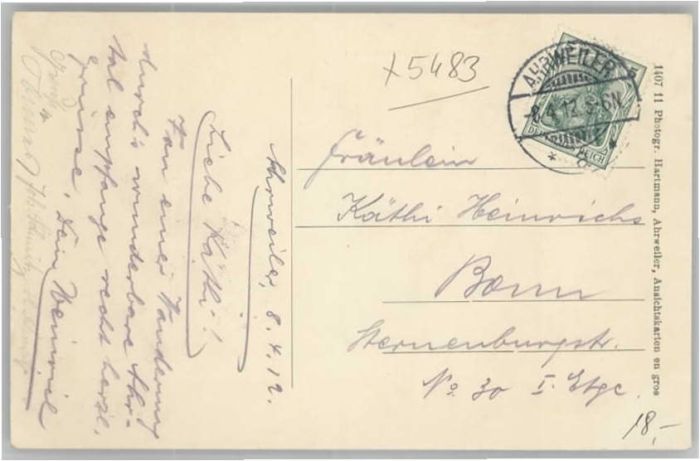 Ahrweiler, 8.4.12.
Liebe Käthi!
Von einer Wanderung
durch's wunderbare Ahr-
tal empfange recht herzl.
Grüsse. Dein Heinrich
x5483
AHRWEILER
-8.4.12. 5-6N
REICH
Fräulein
Käthi Heinrichs
Bonn
Sternenburgstr.
No. 30 I. Etge.
18,-
1407 11 Photogr. Hartmann, Ahrweiler, Ansichtskarten en gros